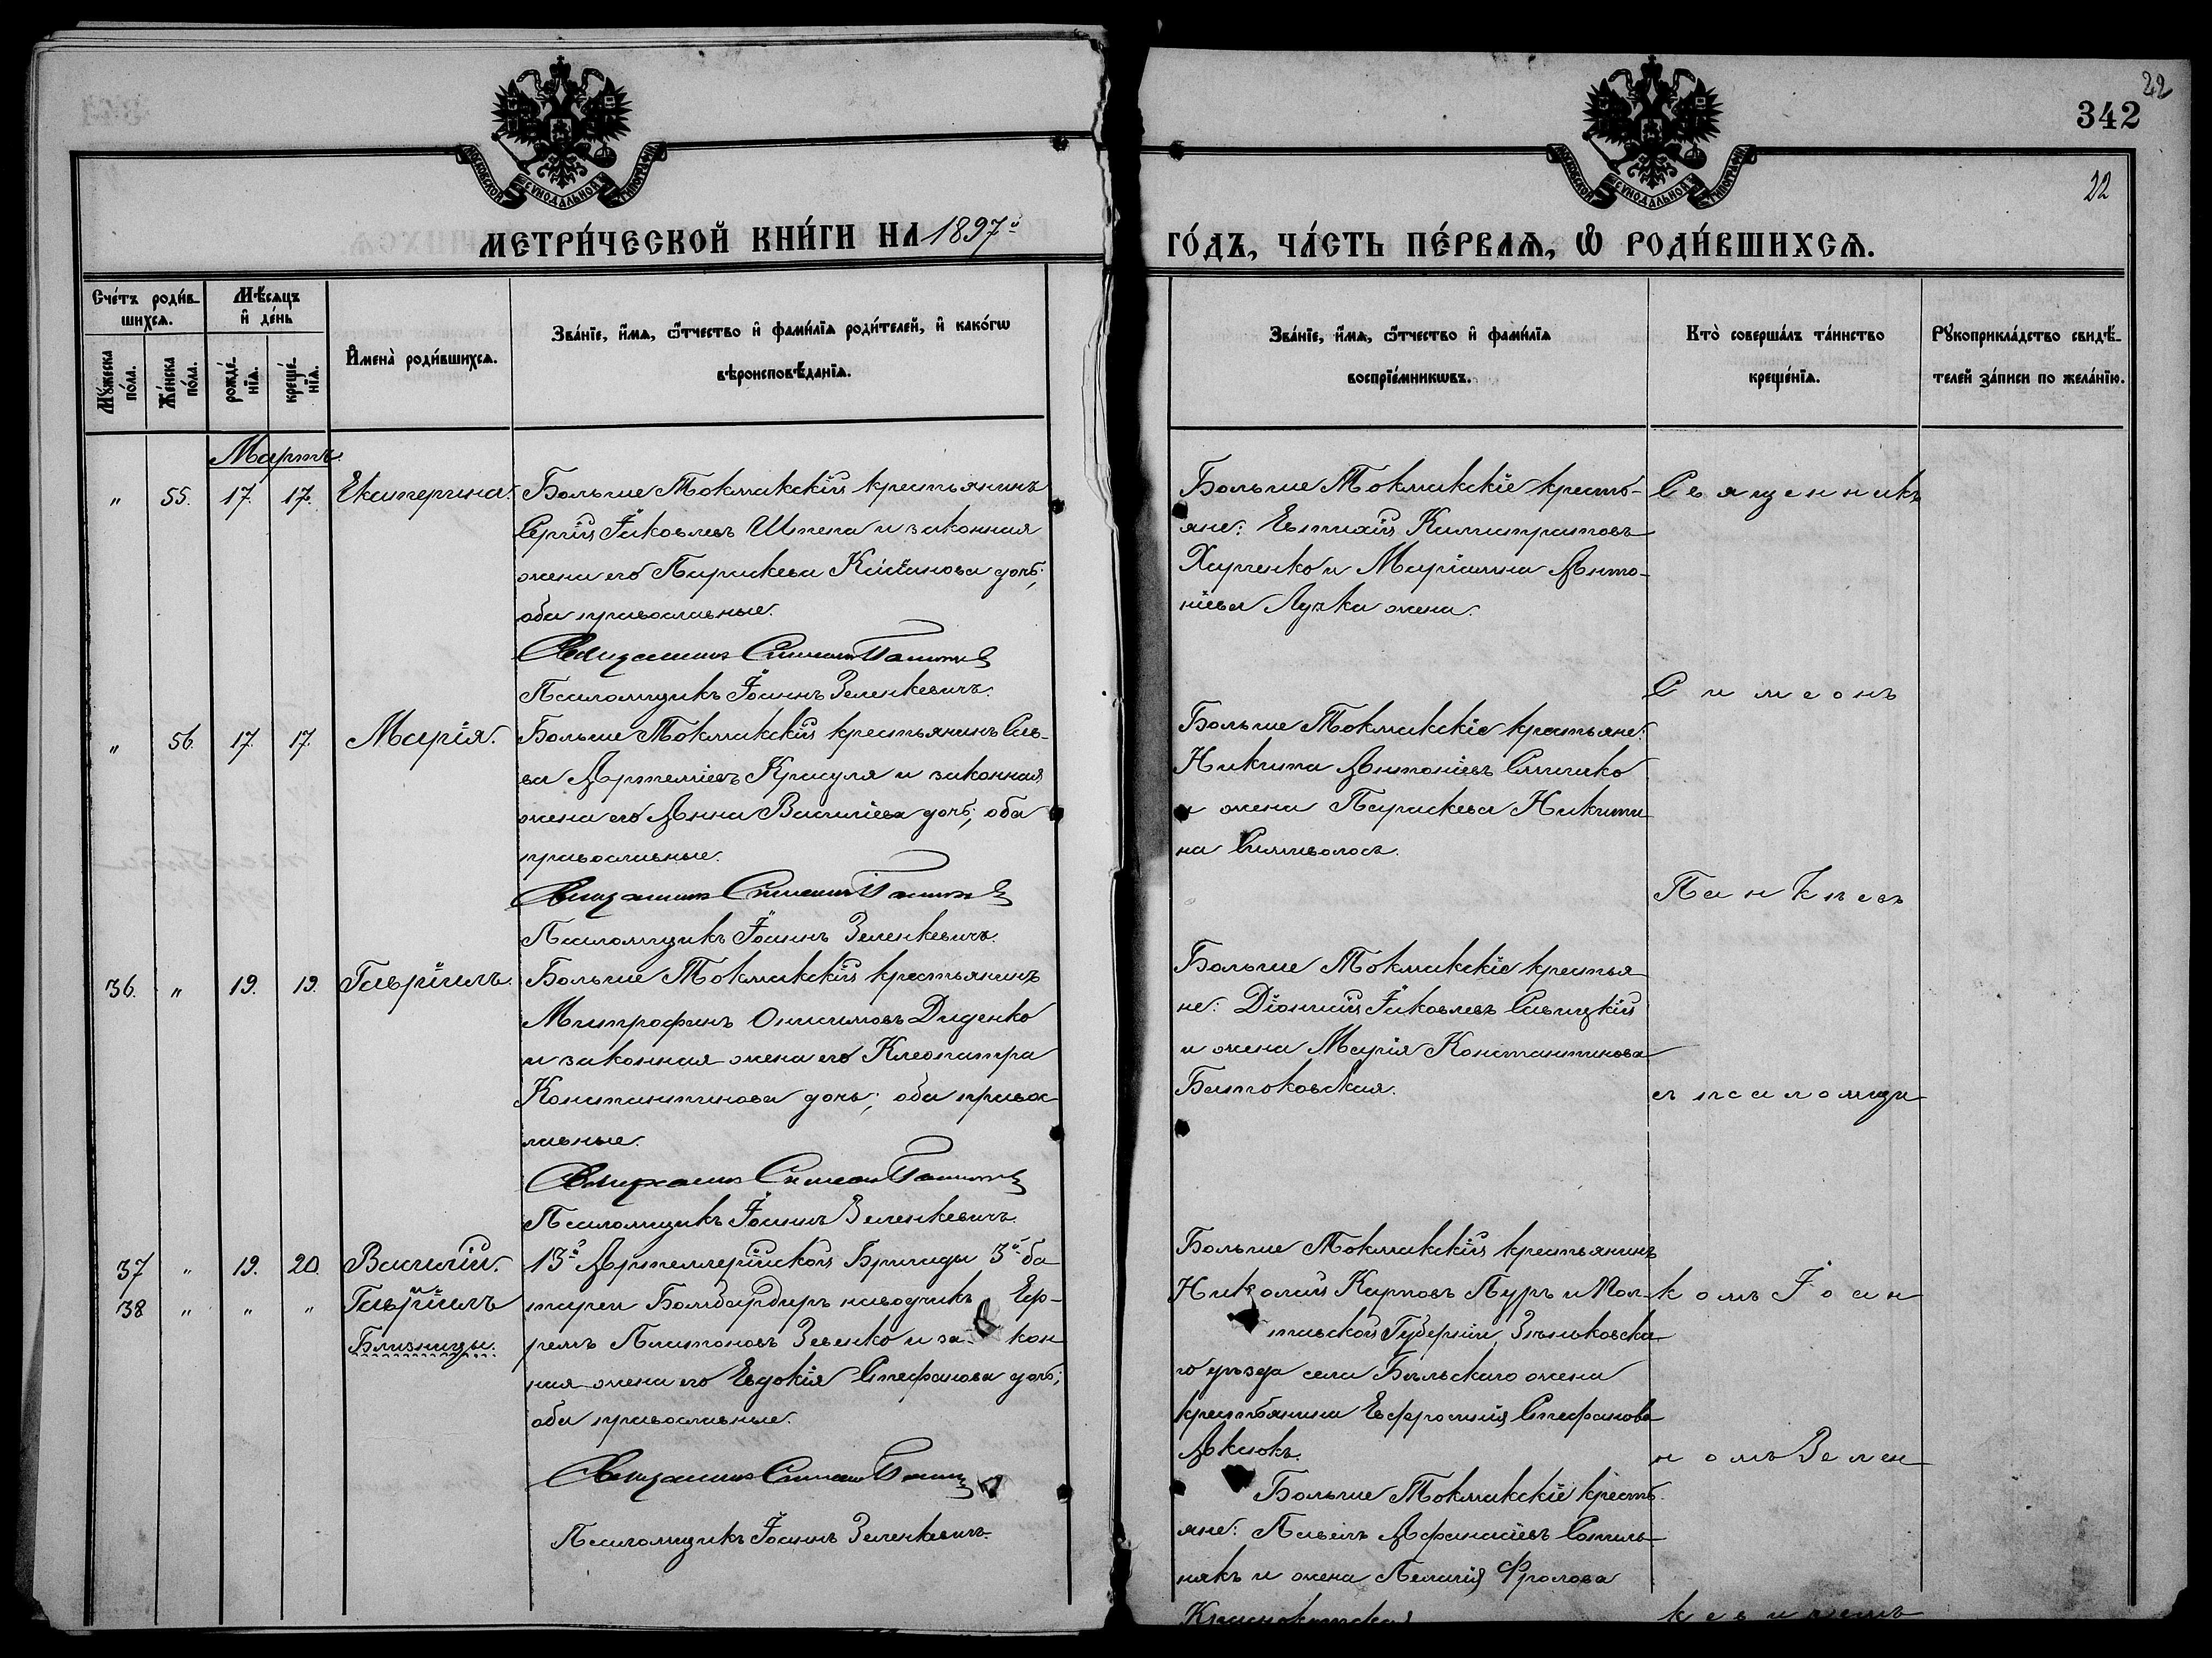 22
342
22
МЕТРИ́ЧЕСКОЙ КНИ́ГИ НА 1897й
ГО́ДЪ, ЧА́СТЬ ПЕ́РВАѦ, Ѡ҆ РОДИ́ВШИХСѦ.
Сче́тъ роди́в-
шихсѧ.
Мѣ́сѧцъ
и҆ де́нь
Мꙋ́жеска
по́ла.
Же́нска
по́ла.
рожде́-
нїѧ.
креще́-
нїѧ.
И҆мена̀ роди́вшихсѧ.
Зва́нїе, и҆́мѧ, ѻ҆́тчество и҆ фами́лїѧ роди́телей, и҆ како́гѡ
вѣроисповѣ́данїѧ.
Зва́нїе, и҆́мѧ, ѻ҆́тчество и҆ фами́лїѧ
воспрїе́мникѡвъ.
Кто̀ соверша́лъ та́инство
креще́нїѧ.
Рꙋкоприкла́дство свидѣ́-
телей за́писи по жела́нїю.
Мартъ.
" 55. 17. 17. Екатерина. Больше Токмакскій крестьянинъ
Сергій Іаковлевъ Шпета и законная
жена его Параскева Касіанова дочь;
оба православные.
Священникъ Симеонъ
Псаломщикъ Іоаннъ Зеленкевичъ.
Больше Токмакскіе кресть-
яне: Евтихій Калистратовъ
Харченко и Маріанна Анто-
ніева Лучка жена.
Священникъ
Симеонъ
" 56. 17. 17. Марія. Больше Токмакскій крестьянинъ Сав-
ва Артеміевъ Красуля и законная
жена его Анна Василіева дочь; оба
православные.
Священникъ Симеонъ
Псаломщикъ Іоаннъ Зеленкевичъ.
Больше Токмакскіе крестьяне:
Никита Антоніевъ
и жена Параскева Никити-
на
36. " 19. 19. Гавріилъ. Больше Токмакскій крестьянинъ
Митрофанъ Онисимовъ Диденко
и законная жена его Клеопатра
Константинова дочь; оба правос-
лавные.
Священникъ Симеонъ
Псаломщикъ Іоаннъ Зеленкевичъ.
Больше Токмакскіе крестья-
не: Діонисій Іаковлевъ Савицкій
и жена Марія Константинова
Батоковская.
съ псаломщи-
37 " 19. 20. Василій. 13й Артиллерійской Бригады 3й ба-
38 " " " Гавріилъ тареи Бомбардиръ наводчикъ Еф-
Близнецы. ремъ Платоновъ Зевенко и закон-
ная жена его Евдокія Стефанова дочь;
оба православные.
Священникъ Симеонъ
Псаломщикъ Іоаннъ Зеленкевичъ.
Больше Токмакскій крестьянинъ
Николай Карповъ Пуръ и Пол-
тавской Губерніи, Зѣньковска-
го уѣзда села Бѣльскаго жена
крестьянина Евфросинія Стефанова
Больше Токмакскіе кресть-
яне: Павелъ Афанасіевъ Сотль-
някъ и жена Пелагія Фролова
Краснокутская
комъ Іоан-
номъ Зелен-
кевичемъ